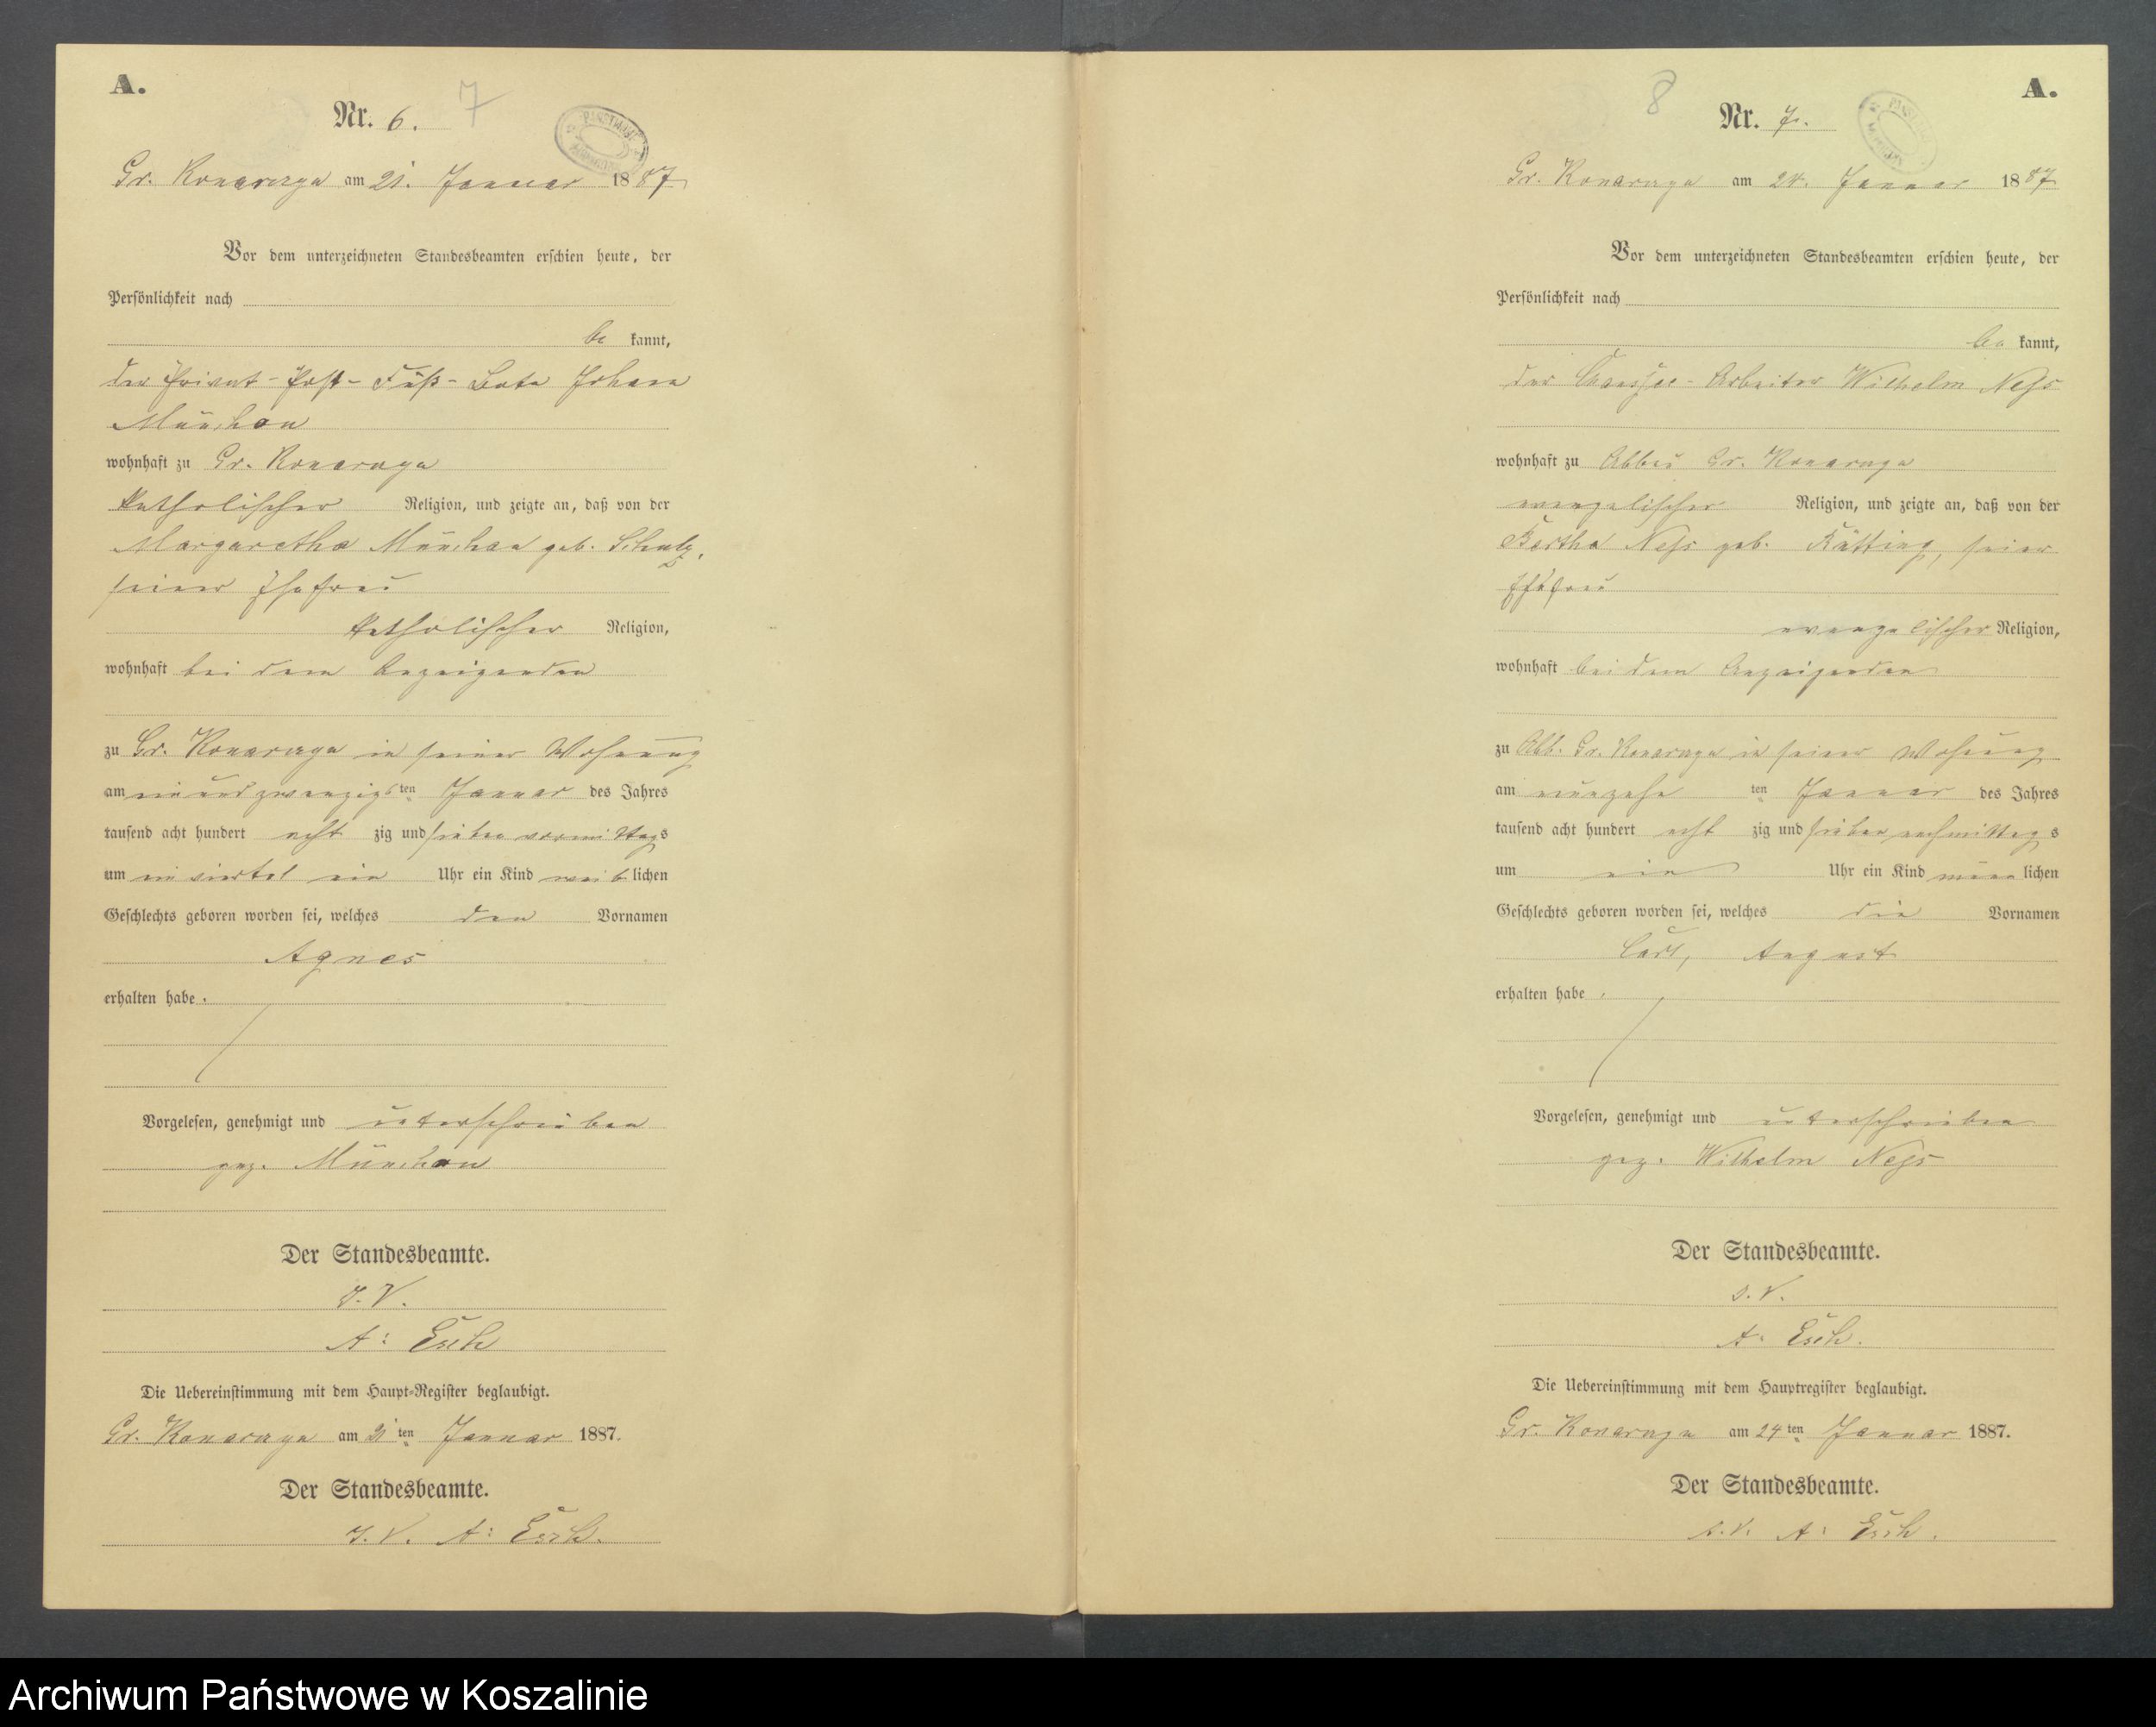 A.
Nr. 6.
7
Gr. Konarczyn am 21. Januar 1887
Vor dem unterzeichneten Standesbeamten erschien heute, der
Persönlichkeit nach
be kannt,
der Privat-Post-Fuß-Bote Johann
München
wohnhaft zu Gr. Konarczyn
katholischer Religion, und zeigte an, daß von der
Margaretha München geb. Schulz,
seiner Ehefrau
katholischer Religion,
wohnhaft bei dem Anzeigenden
zu Gr. Konarczyn in seiner Wohnung
am einundzwanzigsten Januar des Jahres
tausend acht hundert acht zig und sieben vormittags
um ein viertel ein Uhr ein Kind weib lichen
Geschlechts geboren worden sei, welches den Vornamen
Agnes
erhalten habe.
Vorgelesen, genehmigt und unterschrieben
gez. München
Der Standesbeamte.
J. V.
A: Esch
Die Uebereinstimmung mit dem Haupt-Register beglaubigt.
Gr. Konarczyn am 21ten Januar 1887.
Der Standesbeamte.
J. V. A: Esch.
A.
8
Nr. 7.
Gr. Konarczyn am 24. Januar 1887
Vor dem unterzeichneten Standesbeamten erschien heute, der
Persönlichkeit nach
be kannt,
der Chaussee-Arbeiter Wilhelm Ness
wohnhaft zu Abbau Gr. Konarczyn
evangelischer Religion, und zeigte an, daß von der
Bertha Ness geb. seiner
Ehefrau
evangelischer Religion,
wohnhaft bei dem Anzeigenden
zu Abb. Gr. Konarczyn in seiner Wohnung
am neunzehn ten Januar des Jahres
tausend acht hundert acht zig und sieben nachmittags
um ein Uhr ein Kind männ lichen
Geschlechts geboren worden sei, welches die Vornamen
Carl, August
erhalten habe.
Vorgelesen, genehmigt und unterschrieben
gez. Wilhelm Ness
Der Standesbeamte.
J. V.
A: Esch.
Die Uebereinstimmung mit dem Hauptregister beglaubigt.
Gr. Konarczyn am 24ten Januar 1887.
Der Standesbeamte.
J. V. A: Esch.
Archiwum Państwowe w Koszalinie